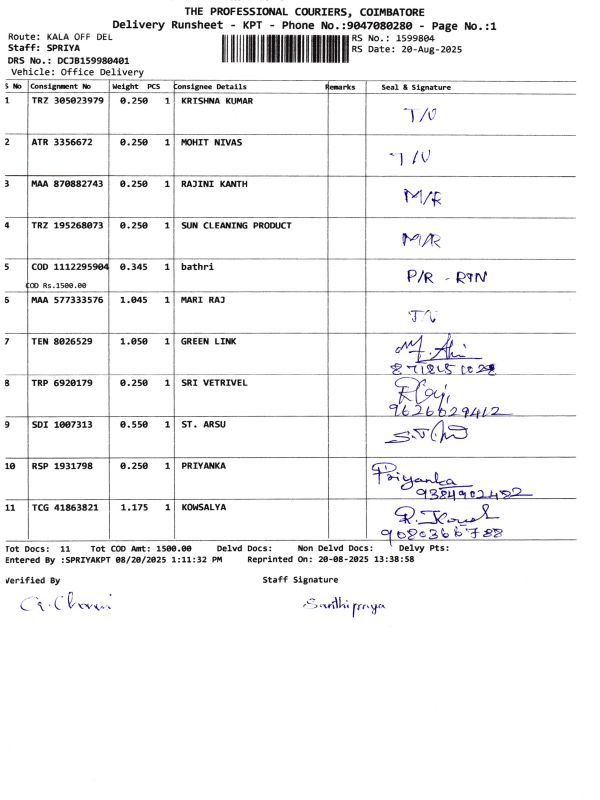 THE PROFESSIONAL COURIERS, COIMBATORE
Delivery Runsheet - KPT - Phone No.:9047080280 - Page No.:1
Route: KALA OFF DEL RS No.: 1599804
Staff: SPRIYA RS Date: 20-Aug-2025
DRS No.: DCJB159980401
Vehicle: Office Delivery
S No Consignment No Weight PCS Consignee Details Remarks Seal & Signature
1 TRZ 305023979 0.250 1 KRISHNA KUMAR T/U
2 ATR 3356672 0.250 1 MOHIT NIVAS T/U
3 MAA 870882743 0.250 1 RAJINI KANTH M/R
4 TRZ 195268073 0.250 1 SUN CLEANING PRODUCT M/R
5 COD 1112295904 0.345 1 bathri P/R - RTN
COD Rs.1500.00
6 MAA 577333576 1.045 1 MARI RAJ
7 TEN 8026529 1.050 1 GREEN LINK
8 TRP 6920179 0.250 1 SRI VETRIVEL
9626629412
9 SDI 1007313 0.550 1 ST. ARSU
10 RSP 1931798 0.250 1 PRIYANKA Priyanka
9384902482
11 TCG 41863821 1.175 1 KOWSALYA
9080366788
Tot Docs: 11 Tot COD Amt: 1500.00 Delvd Docs: Non Delvd Docs: Delvy Pts:
Entered By :SPRIYAKPT 08/20/2025 1:11:32 PM Reprinted On: 20-08-2025 13:38:58
Verified By Staff Signature
Santhipriya